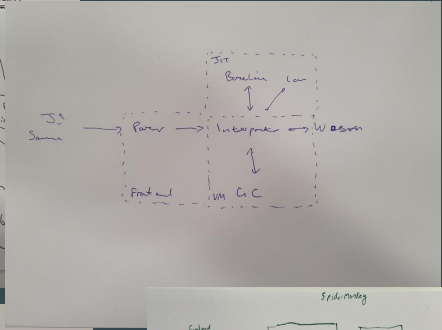 JIT
Baseline Ion
JS
Source
Parser Interpreter Wasm
Frontend VM GC
SpiderMonkey
Frontend